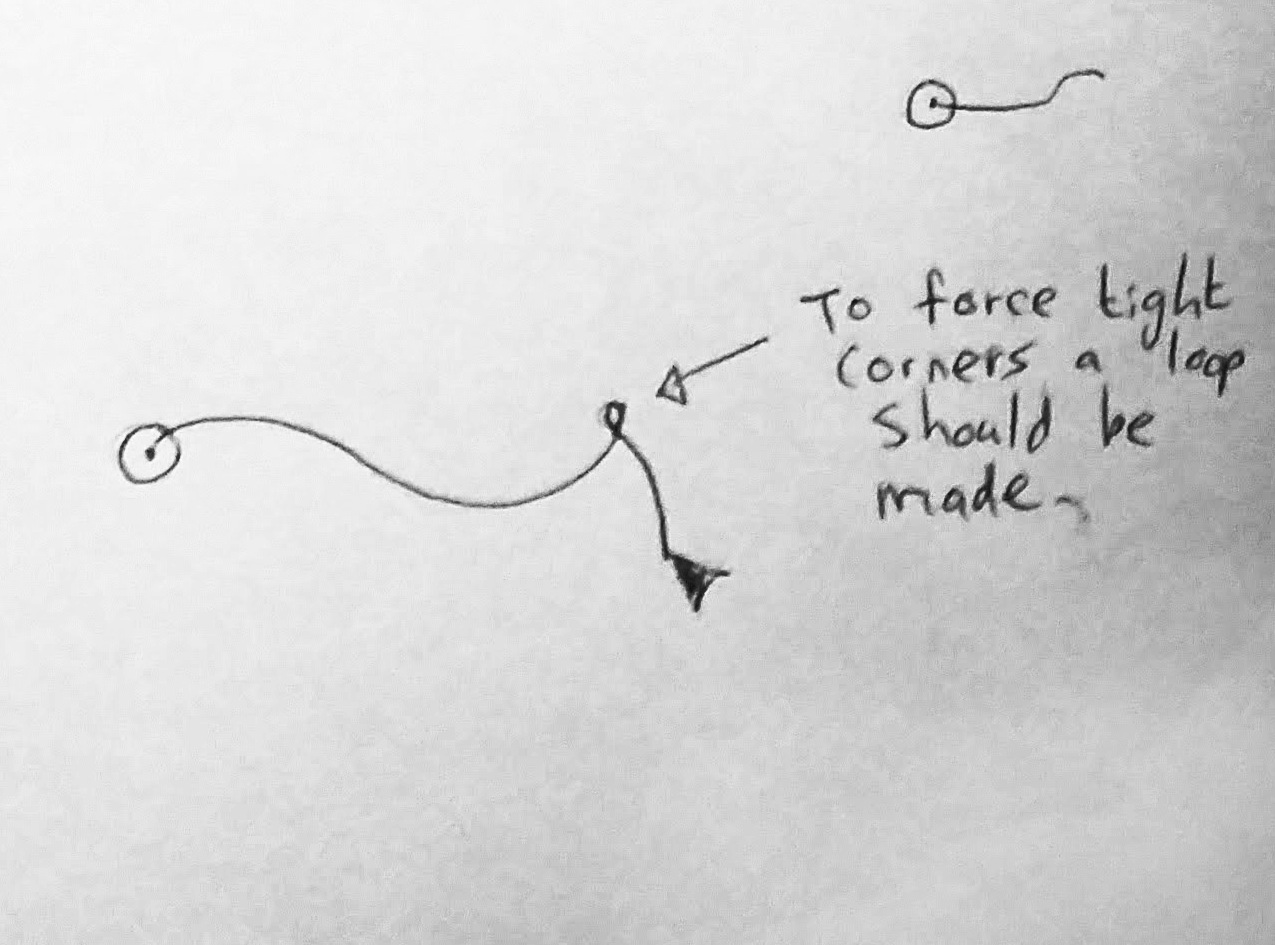 To force tight
corners a loop
should be
made.